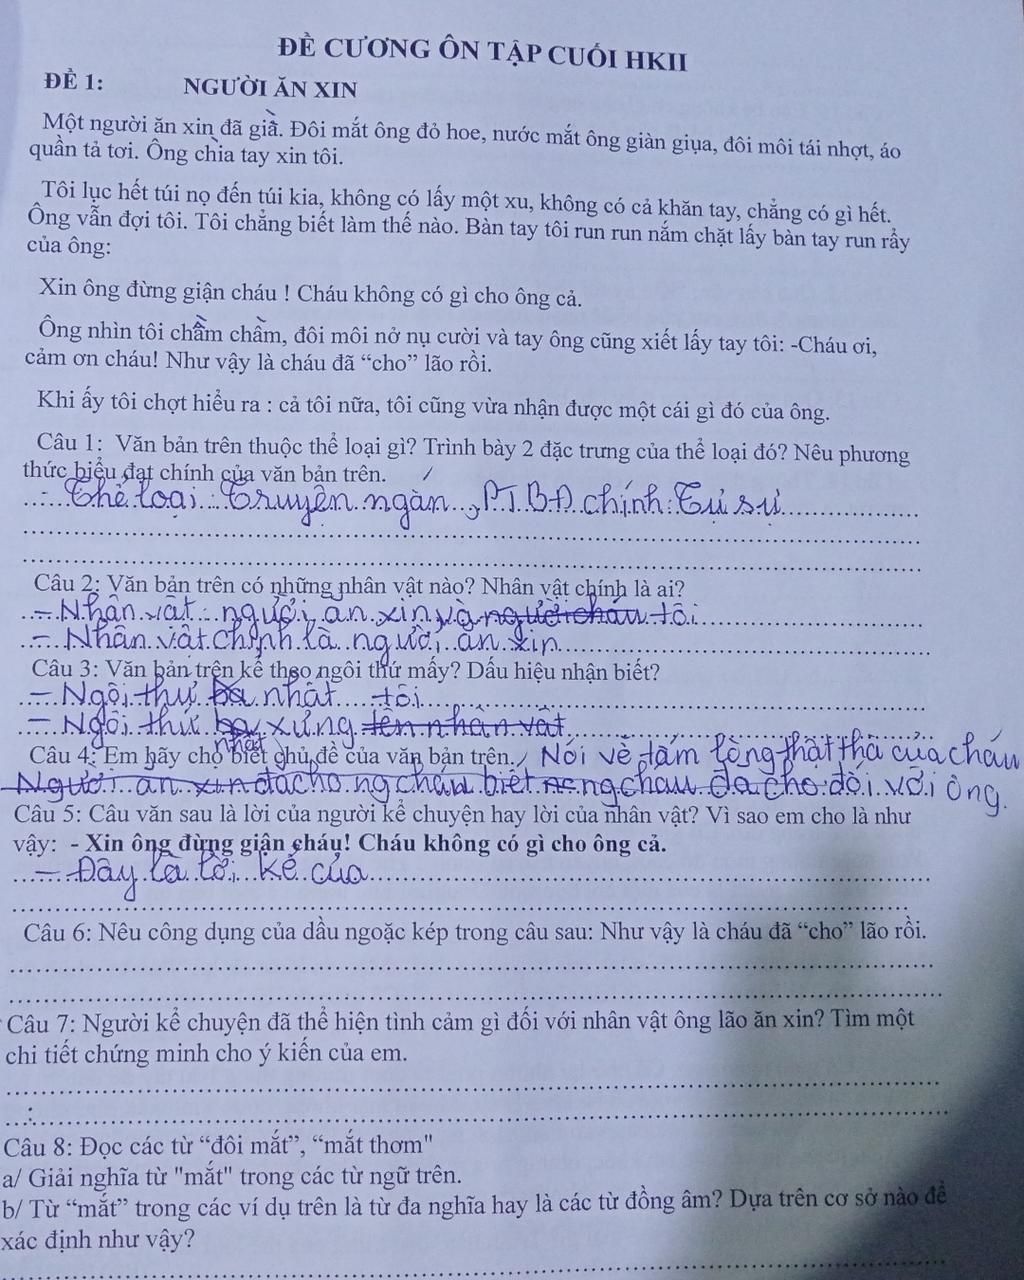 ĐỀ CƯƠNG ÔN TẬP CUỐI HKII
ĐỀ 1: NGƯỜI ĂN XIN
Một người ăn xin đã già. Đôi mắt ông đỏ hoe, nước mắt ông giàn giụa, đôi môi tái nhợt, áo
quần tả tơi. Ông chìa tay xin tôi.
Tôi lục hết túi nọ đến túi kia, không có lấy một xu, không có cả khăn tay, chẳng có gì hết.
Ông vẫn đợi tôi. Tôi chẳng biết làm thế nào. Bàn tay tôi run run nắm chặt lấy bàn tay run rẩy
của ông:
Xin ông đừng giận cháu ! Cháu không có gì cho ông cả.
Ông nhìn tôi chằm chằm, đôi môi nở nụ cười và tay ông cũng xiết lấy tay tôi: -Cháu ơi,
cảm ơn cháu! Như vậy là cháu đã “cho” lão rồi.
Khi ấy tôi chợt hiểu ra : cả tôi nữa, tôi cũng vừa nhận được một cái gì đó của ông.
Câu 1: Văn bản trên thuộc thể loại gì? Trình bày 2 đặc trưng của thể loại đó? Nêu phương
thức biểu đạt chính của văn bản trên.
- Thể loại: Truyện ngắn, PTBĐ chính: Tự sự
Câu 2: Văn bản trên có những nhân vật nào? Nhân vật chính là ai?
- Nhân vật: người ăn xin và người cháu tôi
- Nhân vật chính là người ăn xin
Câu 3: Văn bản trên kể theo ngôi thứ mấy? Dấu hiệu nhận biết?
- Ngôi thứ ba nhất tôi
- Ngôi thứ ba xưng tên nhân vật
nhất
Câu 4: Em hãy cho biết chủ đề của văn bản trên. Nói về tấm lòng thật thà của cháu
Người ăn xin đã cho ng cháu biết ng cháu đã cho đối với ông.
Câu 5: Câu văn sau là lời của người kể chuyện hay lời của nhân vật? Vì sao em cho là như
vậy: - Xin ông đừng giận cháu! Cháu không có gì cho ông cả.
- Đây là lời kể của
Câu 6: Nêu công dụng của dấu ngoặc kép trong câu sau: Như vậy là cháu đã “cho” lão rồi.
Câu 7: Người kể chuyện đã thể hiện tình cảm gì đối với nhân vật ông lão ăn xin? Tìm một
chi tiết chứng minh cho ý kiến của em.
Câu 8: Đọc các từ “đôi mắt”, “mắt thơm"
a/ Giải nghĩa từ "mắt" trong các từ ngữ trên.
b/ Từ “mắt” trong các ví dụ trên là từ đa nghĩa hay là các từ đồng âm? Dựa trên cơ sở nào để
xác định như vậy?